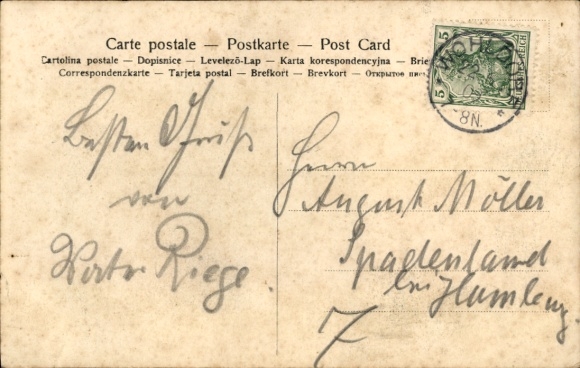 Carte postale — Postkarte — Post Card
Cartolina postale — Dopisnice — Levelező-Lap — Karta korespondencyjna — Brie
Correspondenzkarte — Tarjeta postal — Brefkort — Brevkort — Открытое пис
5
5
REICH
WOHLTORF
8N.
Besten Gruß
von
Riege.
Herrn
August Möller
Spadenland
bei Hamburg
7